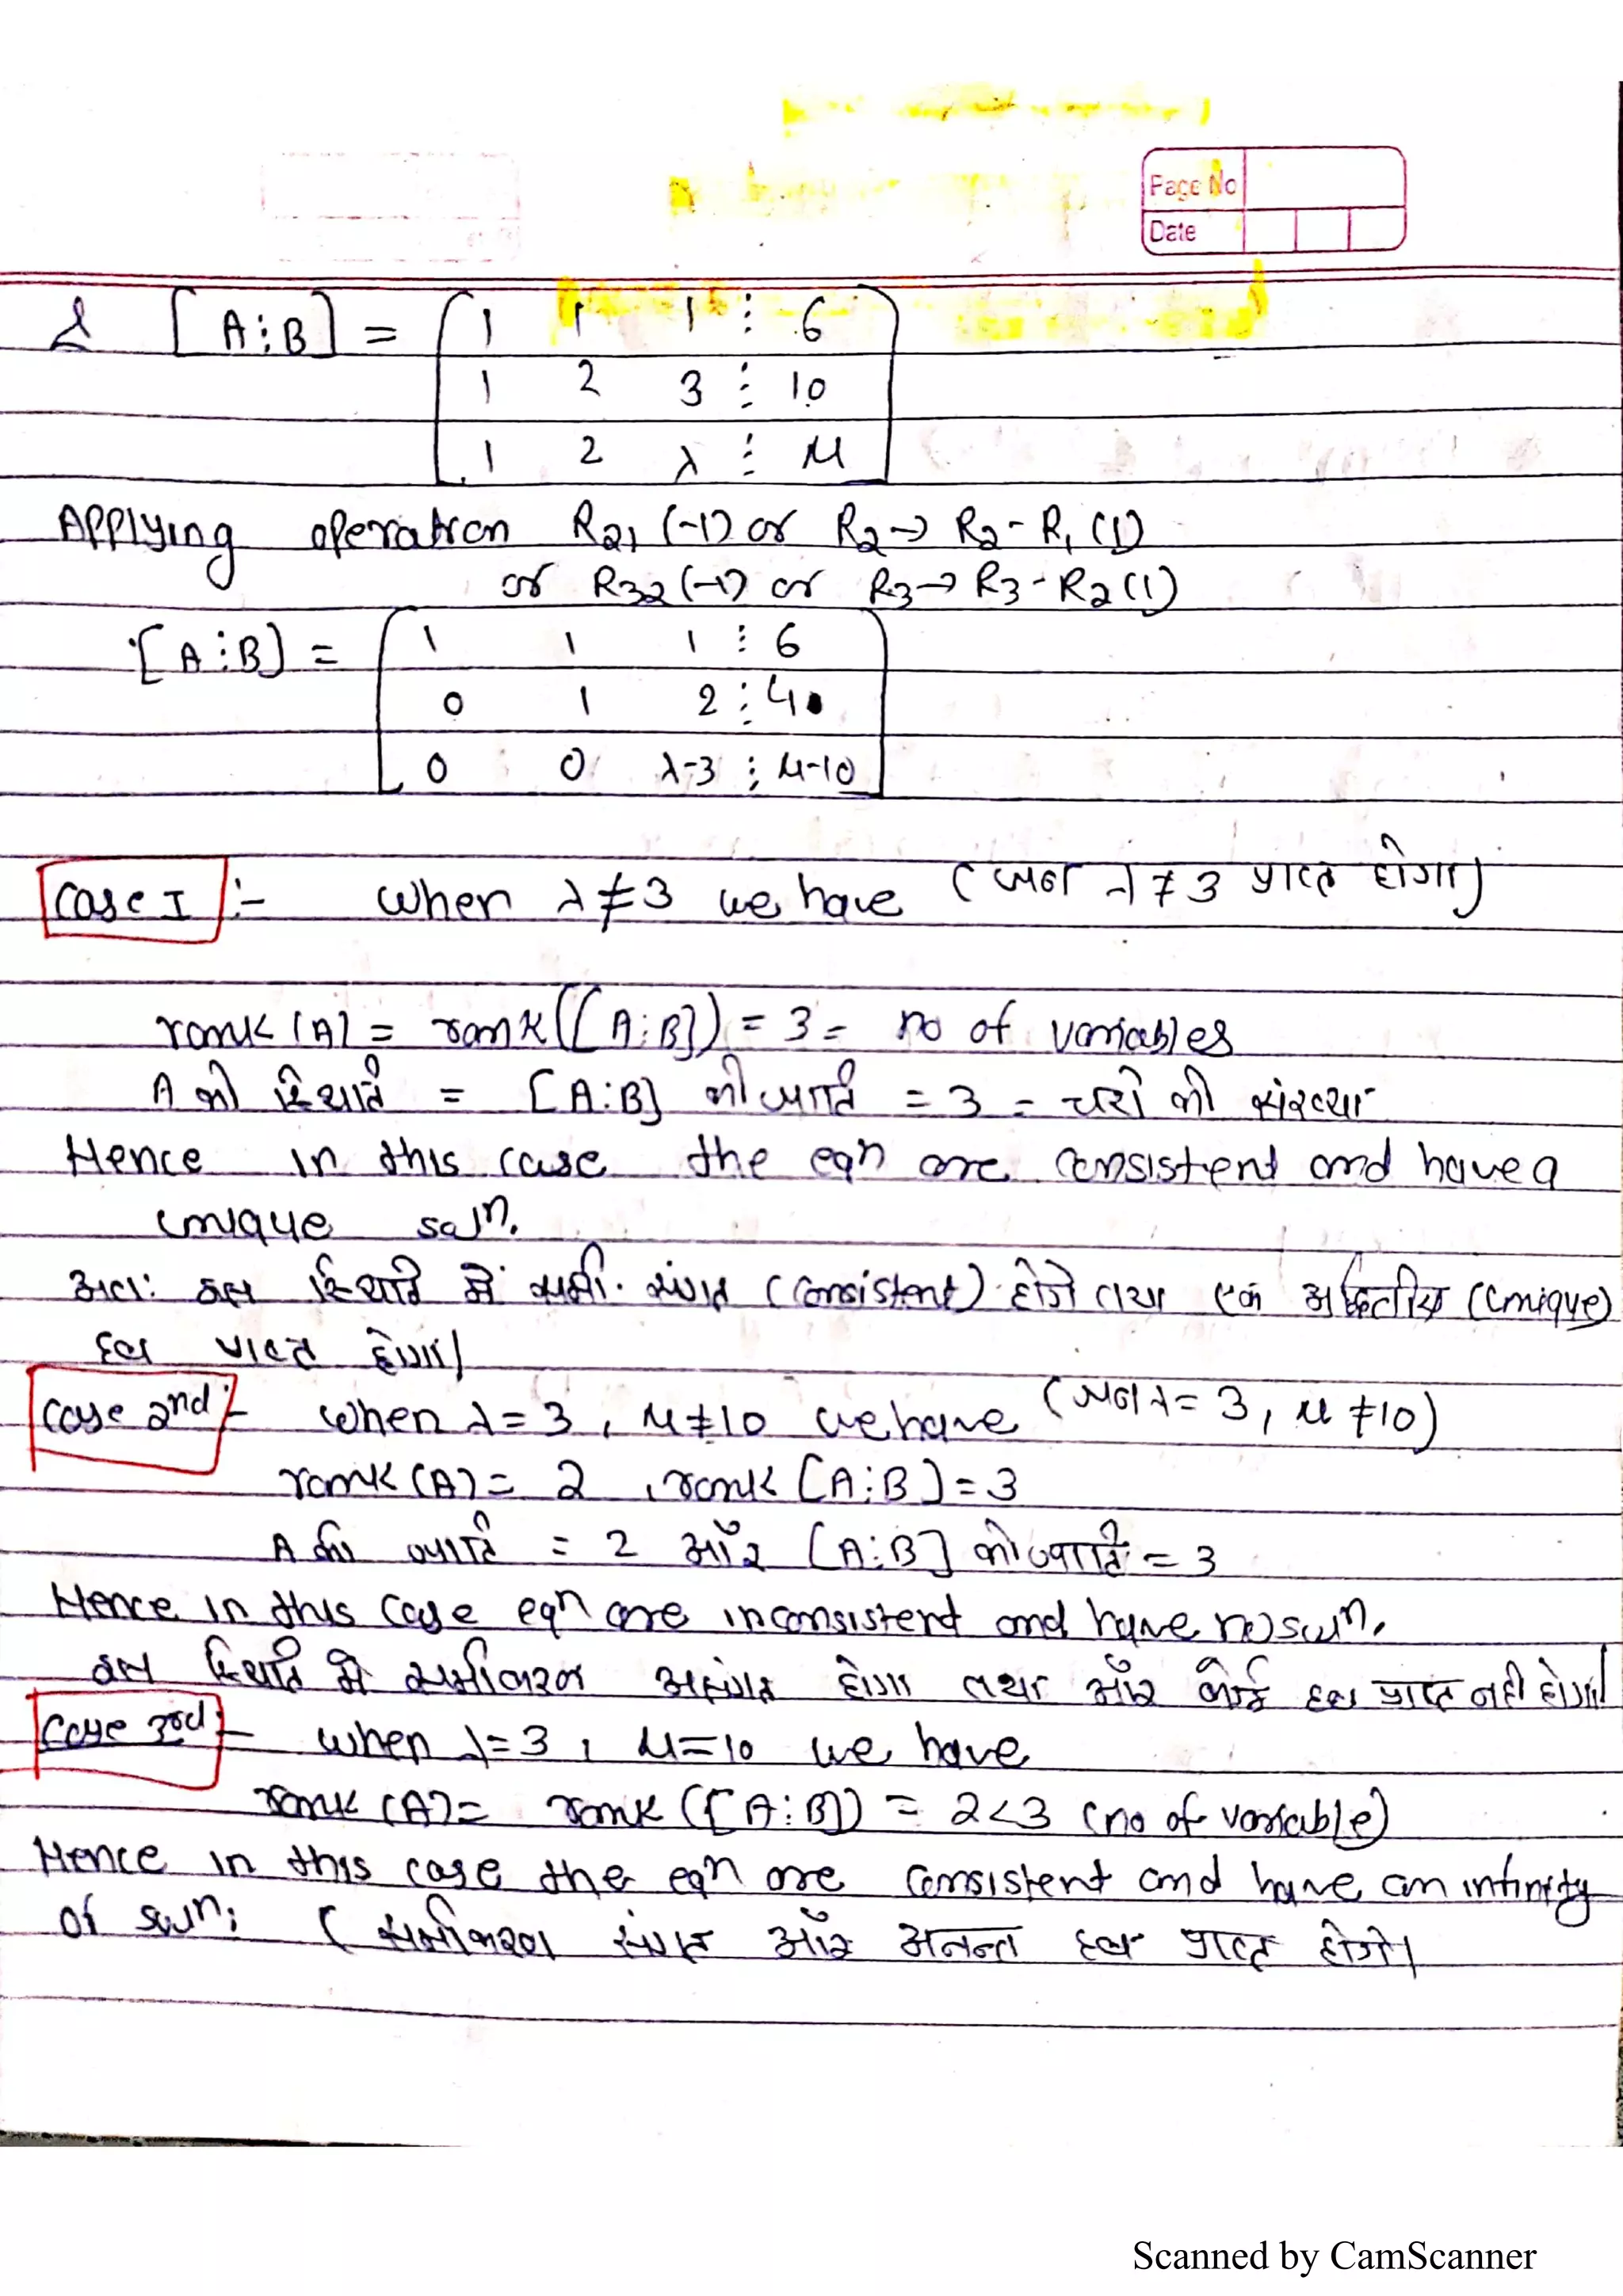 Page No
Date
& [A⋮B] = [1 1 1 ⋮ 6
1 2 3 ⋮ 10
1 2 λ ⋮ μ]
Applying operation R21 (-1) or R2→ R2-R1 (1)
or R32(-1) or R3→ R3-R2(1)
[A⋮B] = [1 1 1 ⋮ 6
0 1 2 ⋮ 4
0 0 λ-3 ⋮ μ-10]
Case I :- When λ≠3 we have (जब λ≠3 प्राप्त होगा)
rank(A) = rank([A:B]) = 3 = no of variables
A की स्थिति = [A:B] की जाति = 3 = चरो की संख्या
Hence in this case the eqn are consistent and have a
unique soln.
अतः इस स्थिति में सभी संगत (consistent) होगे तथा एक अद्वितीय (unique)
हल प्राप्त होगा।
Case 2nd :- When λ=3, μ≠10 we have (जब λ=3, μ≠10)
rank(A) = 2, rank [A:B] = 3
A की जाति = 2 और [A:B] की जाति = 3
Hence in this case eqn are inconsistent and have no soln.
इस स्थिति मे समीकरण असंगत होगा तथा और कोई हल प्राप्त नही होगा।
Case 3rd :- When λ=3, μ=10 we have
rank(A) = rank([A:B]) = 2<3 (no of variable)
Hence in this case the eqn are consistent and have an infinity
of soln: (समीकरण संगत और अनन्त हल प्राप्त होगे।
Scanned by CamScanner